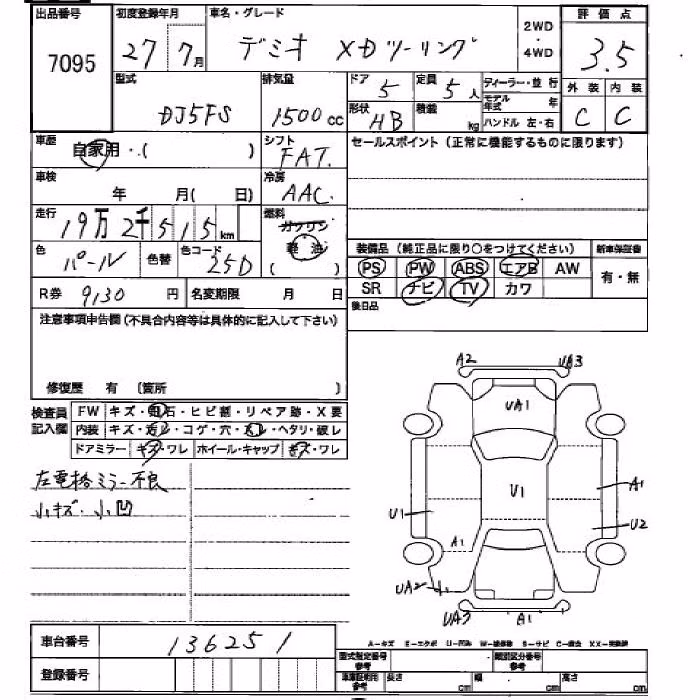 出品番号 初度登録年月 車名・グレード 2WD・4WD 評価点
7095 27 7月 デミオ XDツーリング 3.5
型式 排気量 ドア 5 定員 5人 ディーラー・並行 外装 内装
DJ5FS 1500cc 形状 HB 積載 kg モデル年式 年 C C
ハンドル 左・右
車歴 自家用・( ) シフト FAT. セールスポイント(正常に機能するものに限ります)
車検 年 月( 日) 冷房 AAC
走行 19万2千515km 燃料 ガソリン 軽油 ( )
色 パール 色替 色コード 25D 装備品(純正品に限り○をつけてください) 新車保証書
PS PW ABS エアB AW 有・無
R券 9130円 名変期限 月 日 SR ナビ TV カワ
後日品
注意事項申告欄(不具合内容等は具体的に記入して下さい)
修復歴 有 (箇所 )
検査員記入欄 FW キズ・飛石・ヒビ割・リペア跡・X要
内装 キズ・汚レ・コゲ・穴・スレ・ヘタリ・破レ
ドアミラー キズ・ワレ ホイール・キャップ キズ・ワレ
左電格ミラー不良
小キズ・小凹
A2 UA3
UA1
U1
A1
U1 U2
A1
UA2
UA3 A1
A−キズ E−エクボ U−凹み W−補修跡 S−サビ C−腐食 XX−交換済
車台番号 136251 型式指定番号参考 類別区分番号参考
登録番号 車庫証明用参考 長さ cm 幅 cm 高さ cm